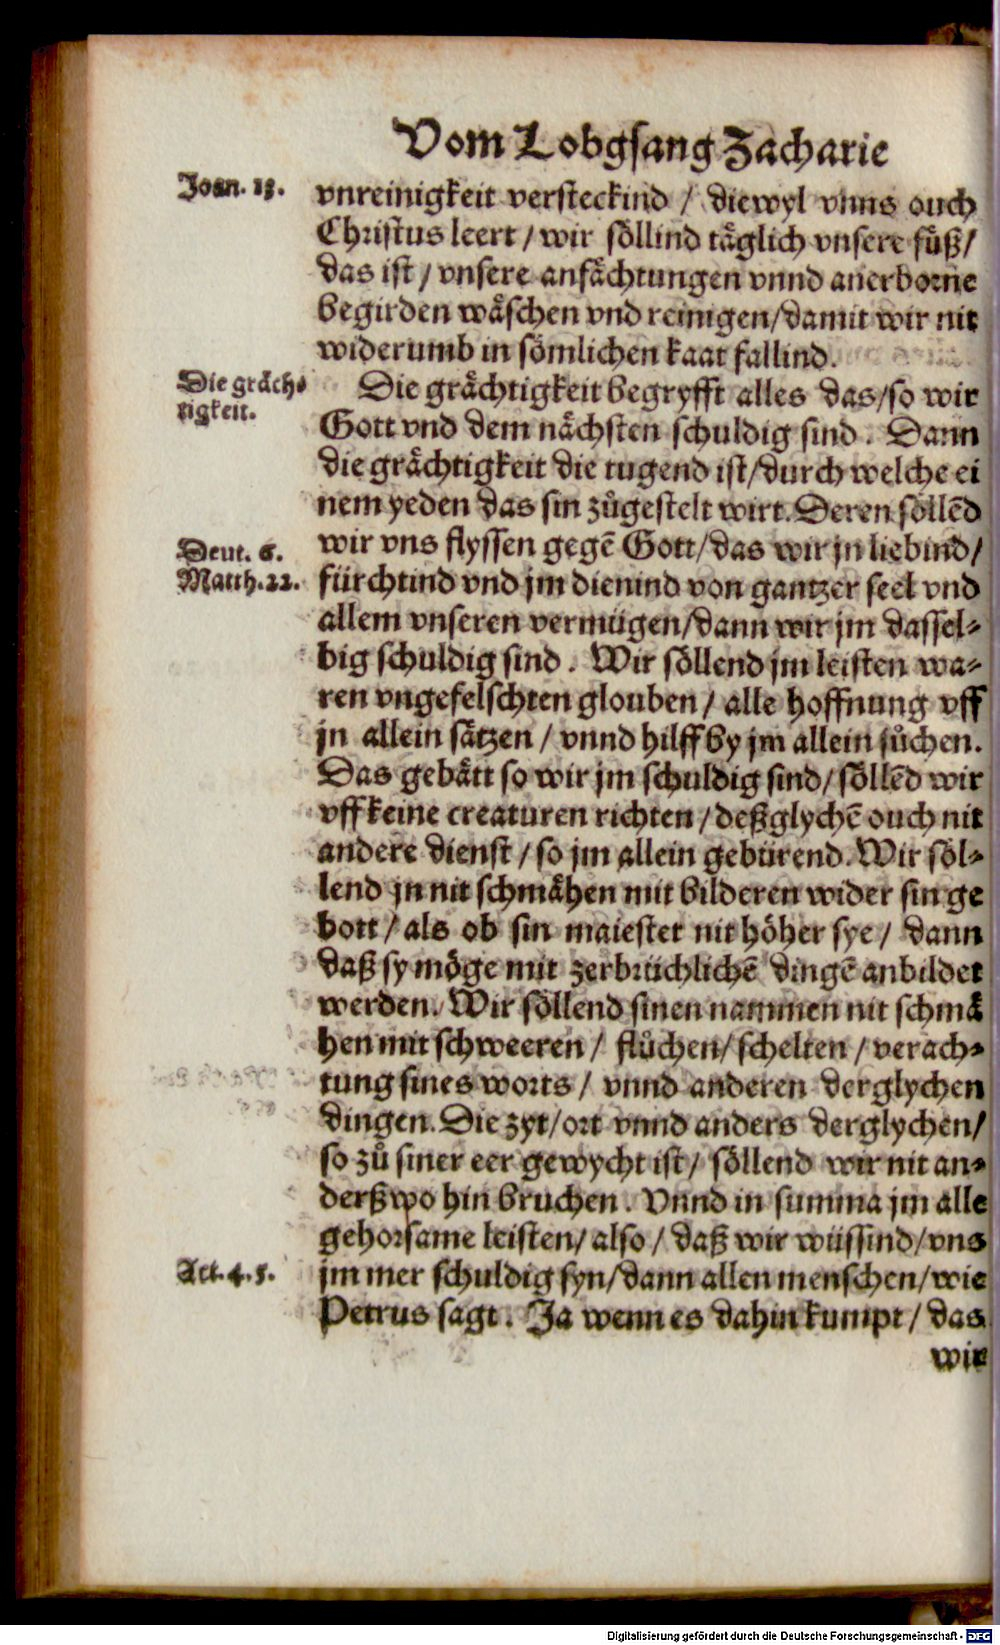 Vom Lobgsang Zacharie
Joan. 13.
vnreinigkeit versteckind / diewyl vnns ouch
Christus leert / wir söllind täglich vnsere fuͤß /
das ist / vnsere anfächtungen vnnd anerborne
begirden wäschen vnd reinigen / damit wir nit
widerumb in sömlichen kaat fallind.
Die gräch⸗
tigkeit.
Die grächtigkeit begryfft alles das / so wir
Gott vnd dem nächsten schuldig sind. Dann
die grächtigkeit die tugend ist / durch welche ei
nem yeden das sin zuͦgestelt wirt. Deren söllẽd
Deut. 6.
Matth. 22.
wir vns flyssen gegẽ Gott / das wir jn liebind /
fürchtind vnd jm dienind von gantzer seel vnd
allem vnseren vermügen / dann wir jm dassel⸗
big schuldig sind. Wir söllend jm leisten wa⸗
ren vngefelschten glouben / alle hoffnung vff
jn allein sätzen / vnnd hilff by jm allein suͦchen.
Das gebätt so wir jm schuldig sind / söllẽd wir
vff keine creaturen richten / deßglychẽ ouch nit
andere dienst / so jm allein gebürend. Wir söl⸗
lend jn nit schmähen mit bilderen wider sin ge
bott / als ob sin maiestet nit höher sye / dann
daß sy möge mit zerbrüchlichẽ dingẽ anbildet
werden. Wir söllend sinen nammen nit schmä
hen mit schweeren / fluͦchen / schelten / verach⸗
tung sines worts / vnnd anderen derglychen
dingen. Die zyt / ort vnnd anders derglychen /
so zuͦ siner eer gewycht ist / söllend wir nit an⸗
derßwo hin bruchen. Vnnd in summa jm alle
gehorsame leisten / also / daß wir wüssind / vns
Act. 4. 5.
jm mer schuldig syn / dann allen menschen / wie
Petrus sagt. Ja wenn es dahin kumpt / das
wir
Digitalisierung gefördert durch die Deutsche Forschungsgemeinschaft - DFG